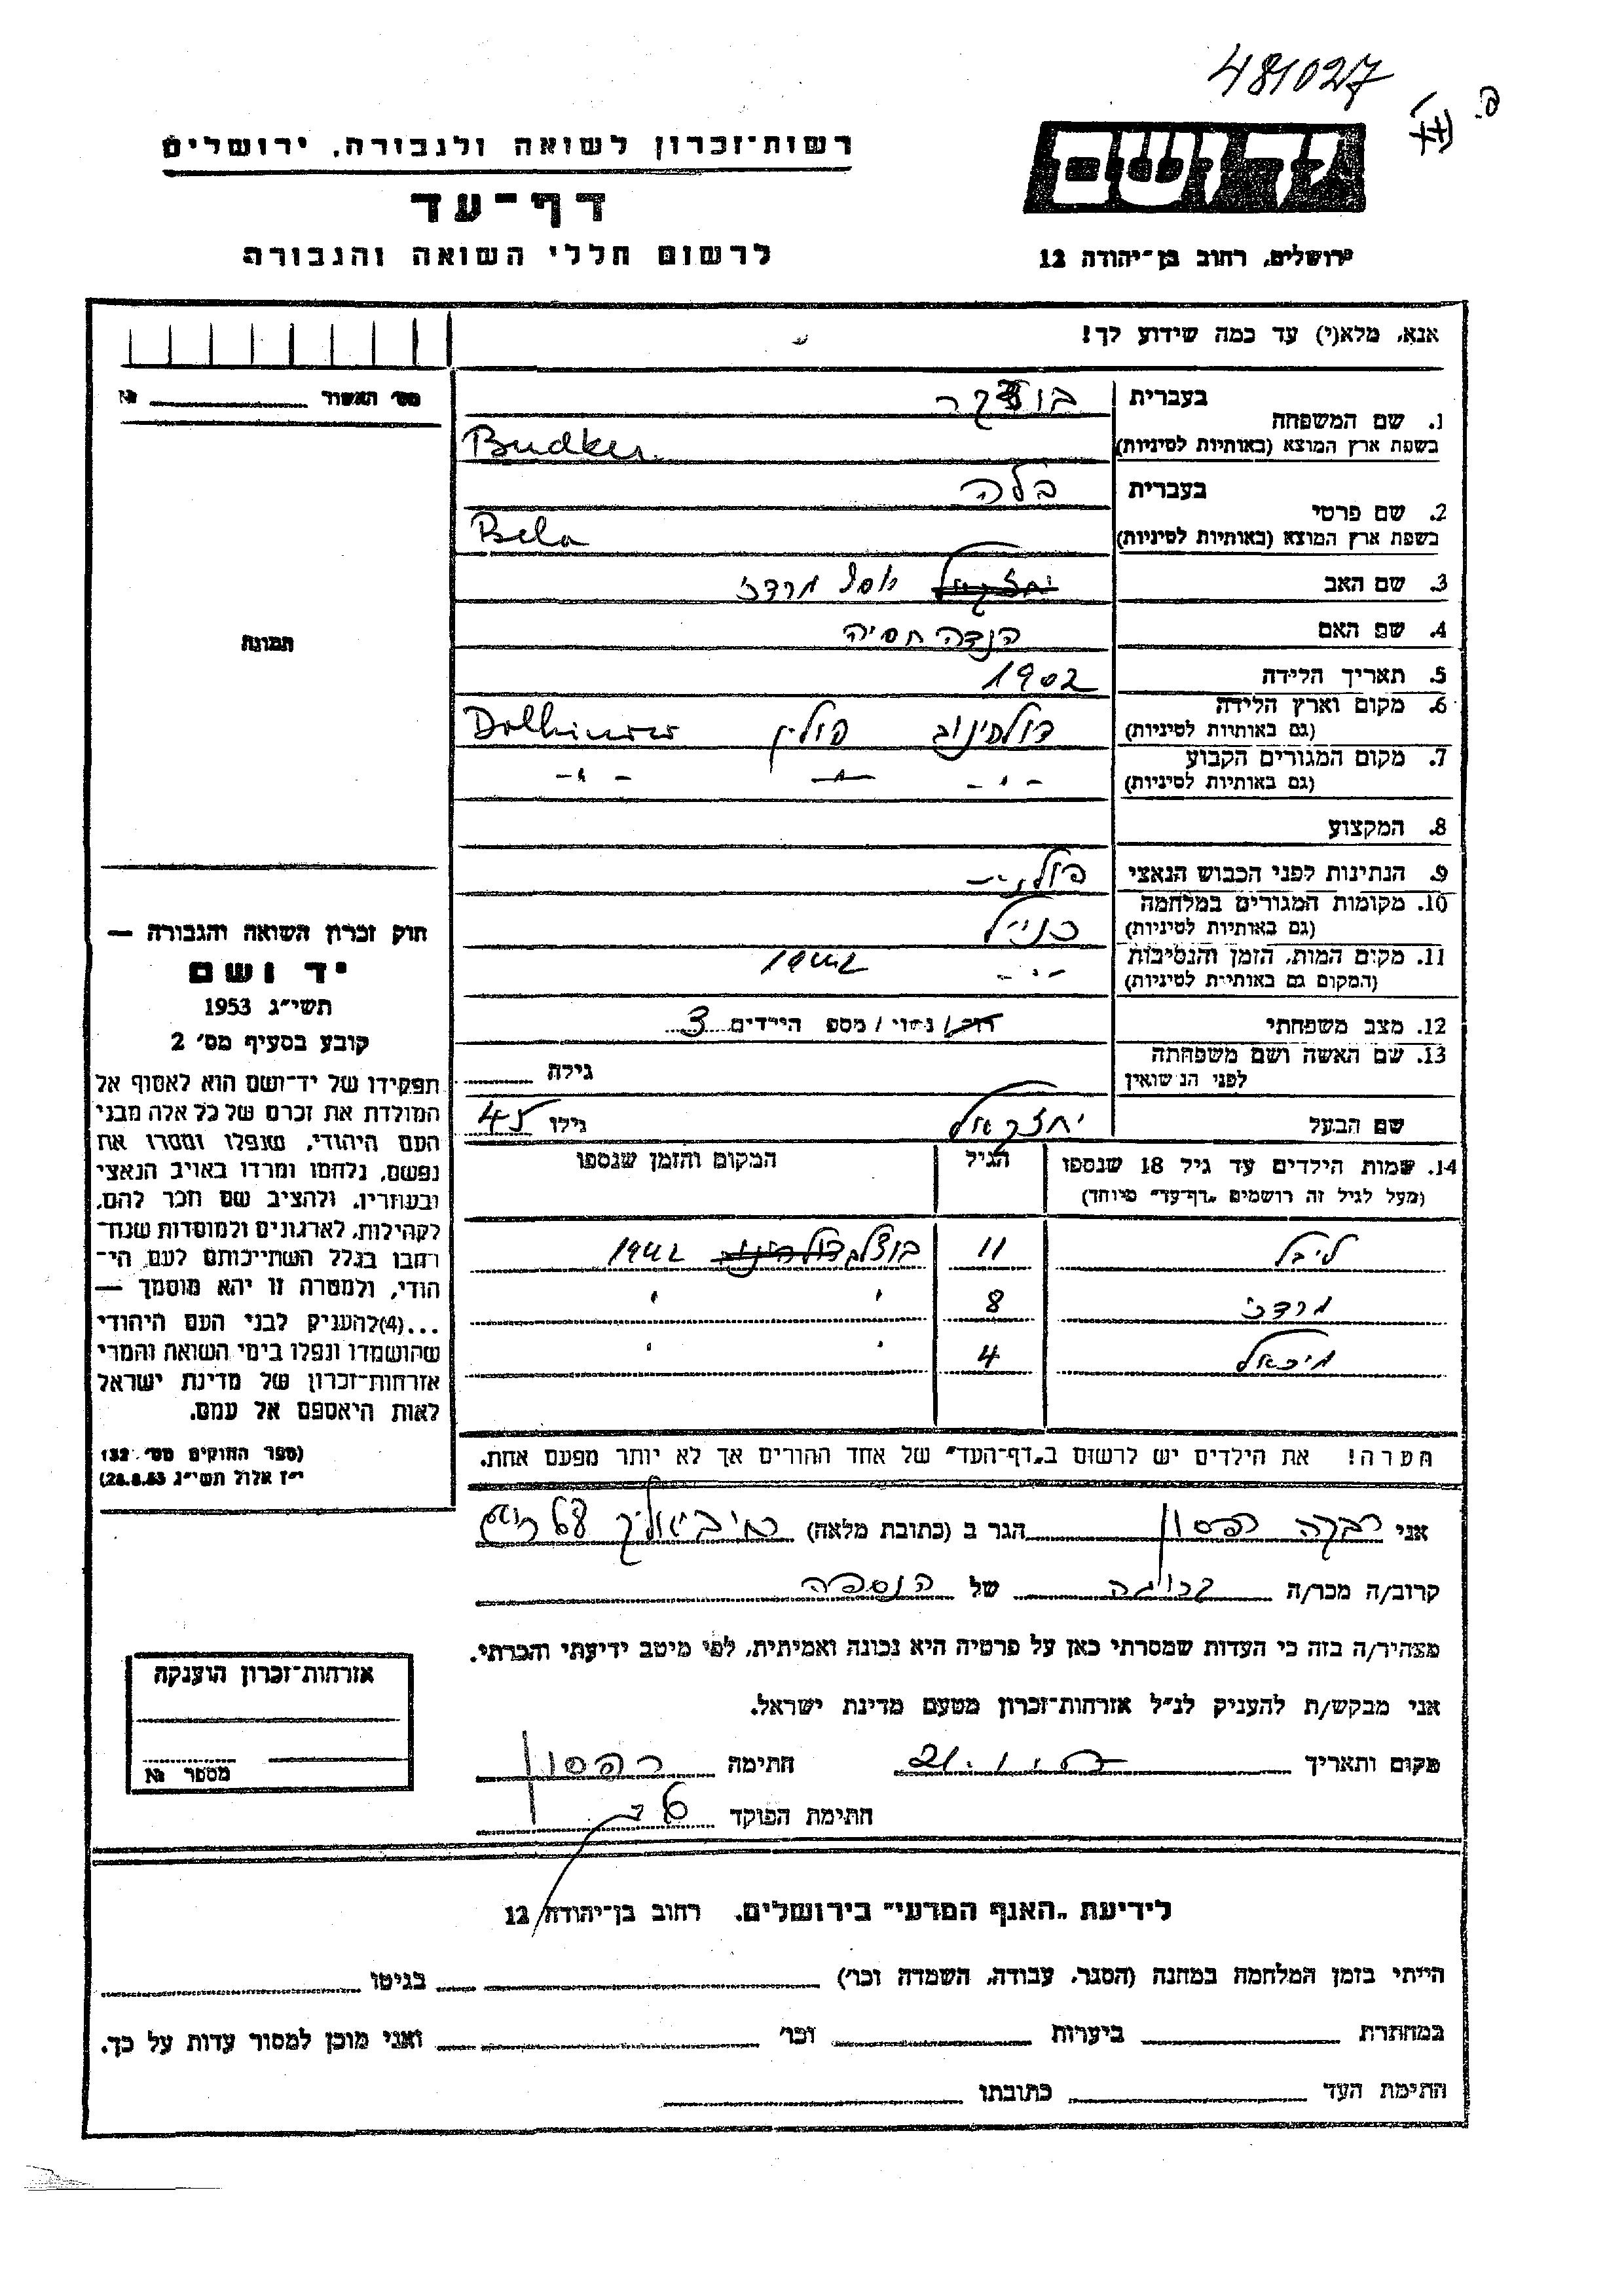 481027
פ.
רשות־זכרון לשואה ולגבורה, ירושלים
דף־עד
לרשום חללי השואה והגבורה
ירושלים, רחוב בן־יהודה 12
אנא, מלא(י) עד כמה שידוע לך!
מס׳ האשור № 
1. שם המשפחה בעברית בודקר
בשפת ארץ המוצא (באותיות לטיניות) Budker
2. שם פרטי בעברית בלה
בשפת ארץ המוצא (באותיות לטיניות) Bela
3. שם האב יחזקאל מרדכי
4. שם האם הנדה חסיה
5. תאריך הלידה 1902
6. מקום וארץ הלידה (גם באותיות לטיניות) דולהינוב פולין Dolhinow
7. מקום המגורים הקבוע (גם באותיות לטיניות) - " - - " - - " -
8. המקצוע
9. הנתינות לפני הכבוש הנאצי פולנית
10. מקומות המגורים במלחמה (גם באותיות לטיניות) כנ״ל
11. מקום המות, הזמן והנסיבות (המקום גם באותיות לטיניות) - " - 1942
12. מצב משפחתי רווק/ נשוי / מספ הילדים 3
13. שם האשה ושם משפחתה לפני הנשואין גילה
שם הבעל יחזקאל גילו 45
14. שמות הילדים עד גיל 18 שנספו הגיל המקום והזמן שנספו
(מעל לגיל זה רושמים „דף־עד״ מיוחד)
לייבל 11 דולהינוב 1942
מרדכי 8 " "
מיכאל 4 " "
הערה! את הילדים יש לרשום ב„דף־העד״ של אחד ההורים אך לא יותר מפעם אחת.
תמונה
חוק זכרון השואה והגבורה —
יד ושם
תשי״ג 1953
קובע בסעיף מס׳ 2
תפקידו של יד־ושם הוא לאסוף אל
המולדת את זכרם של כל אלה מבני
העם היהודי, שנפלו ומסרו את
נפשם, נלחמו ומרדו באויב הנאצי
ובעוזריו, ולהציב שם וזכר להם,
לקהילות, לארגונים ולמוסדות שנח־
רבו בגלל השתייכותם לעם הי־
הודי, ולמטרה זו יהא מוסמך —
...(4)להעניק לבני העם היהודי
שהושמדו ונפלו בימי השואה והמרי
אזרחות־זכרון של מדינת ישראל
לאות היאספם אל עמם.
(ספר החוקים מס׳ 132
י״ז אלול תשי״ג 28.8.53)
אני רבקה הפסון הגר ב (כתובת מלאה)
קרוב/ה מכר/ה קרובה של הנספה
מצהיר/ה בזה כי העדות שמסרתי כאן על פרטיה היא נכונה ואמיתית, לפי מיטב ידיעתי והכרתי.
אני מבקש/ת להעניק לנ״ל אזרחות־זכרון מטעם מדינת ישראל.
מקום ותאריך 21. חתימה ר הפסון
חתימת הפוקד
אזרחות־זכרון הוענקה
מספר №
לידיעת „האגף המדעי״ בירושלים, רחוב בן־יהודה 12
הייתי בזמן המלחמה במחנה (הסגר, עבודה, השמדה וכו׳) בגיטו
במחתרת ביערות וכו׳ ואני מוכן למסור עדות על כך.
חתימת העד כתובתו